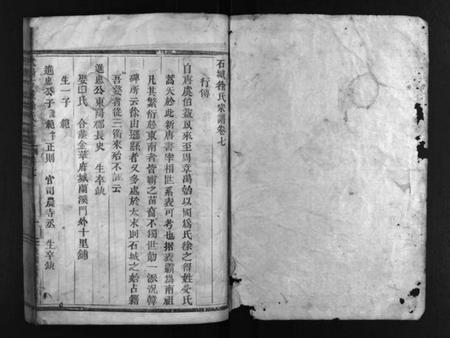 石城徐氏宗譜卷七
行傳
自唐虞伯益以來至周章禹始以國為氏徐之得姓受氏
蒿矢於此新唐書宰相世系表可考也據表霸為南祖
凡其繁衍於東南者皆霸之苗裔不獨世勣一派況韓
碑所云徐由遜縣者又多處於太末則石城之始占籍
吾婺者從三衢來殆不誣云
進忠公東陽郡長史 生卒缺
娶印氏 合葬金華府城蘭溪門外十里鋪
生一子 範
進忠公子範 字正則 官司農寺丞 生卒缺